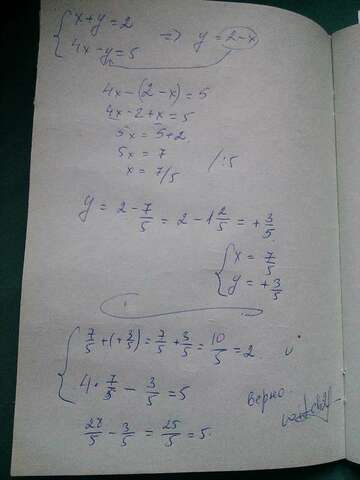 { x+y=2
4x-y=5 => y=2-x
4x-(2-x)=5
4x-2+x=5
5x=5+2
5x=7 /:5
x=7/5
y=2-7/5=2-1 2/5=+3/5
{ x=7/5
y=+3/5
{ 7/5+(+3/5)=7/5+3/5=10/5=2
4·7/5-3/5=5
верно
28/5-3/5=25/5=5.